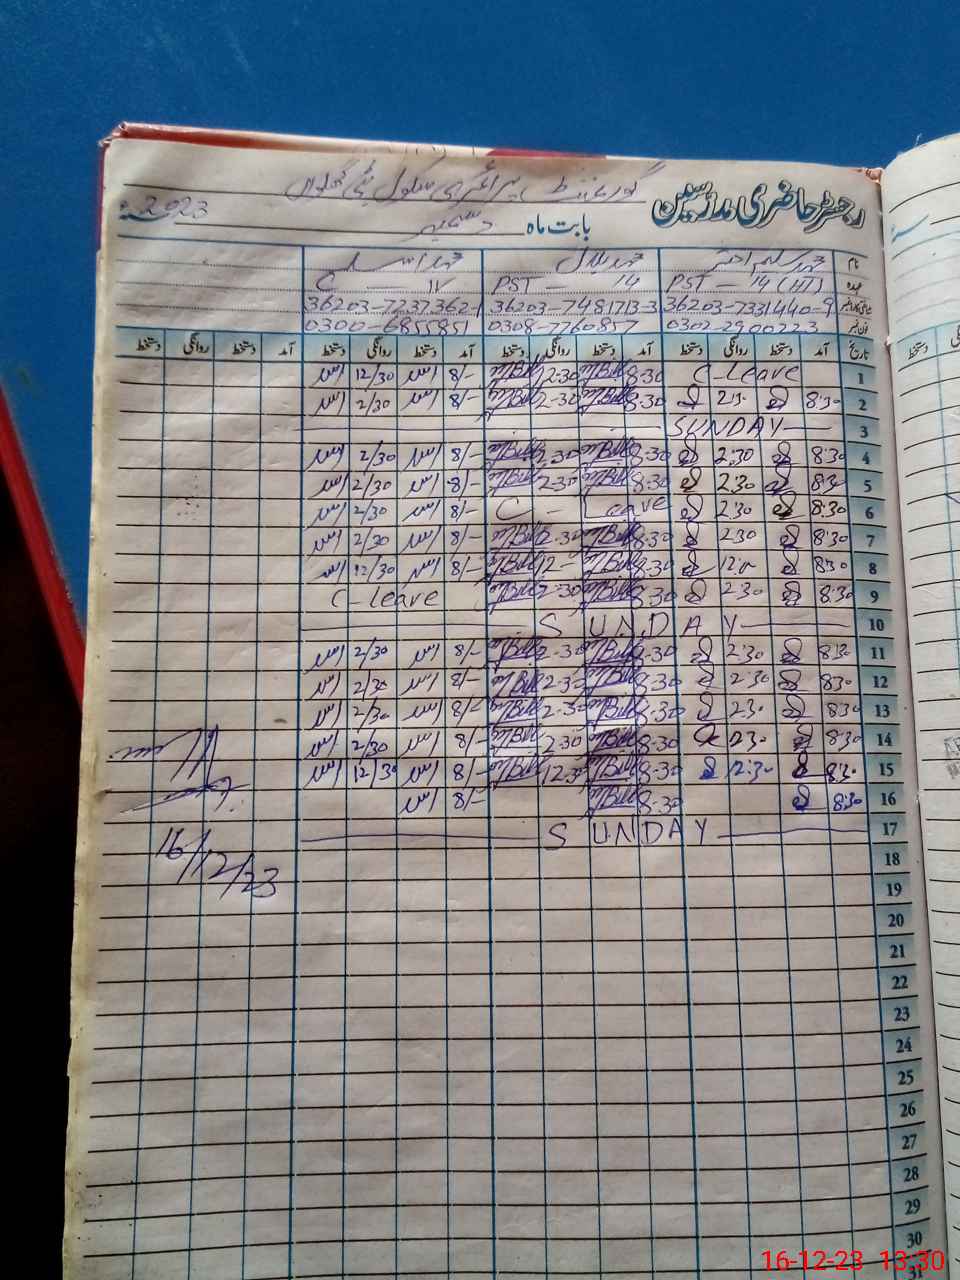 رجسٹر حاضری مدرسین گورنمنٹ پرائمری سکول
بابت ماہ دسمبر 2023
نام محمد سلیم اختر محمد بلال محمد اسلم
عہدہ PST - 14 (HT) PST - 14 C - IV
شناختی کارڈ نمبر 36203-7331440-9 36203-7481713-3 36203-7237362-1
فون نمبر 0302-2900223 0308-7760857 0300-6855851
تاریخ آمد دستخط روانگی دستخط آمد دستخط روانگی دستخط آمد دستخط روانگی دستخط آمد دستخط روانگی دستخط
1 C-Leave 8-30 MBill 12-30 MBill 8/- 12/30
2 8:30 2:30 8-30 MBill 2-30 MBill 8/- 2/30
3 SUNDAY
4 8:30 2:30 8-30 MBill 2-30 MBill 8/- 2/30
5 8:30 2:30 8-30 MBill 2-30 MBill 8/- 2/30
6 8:30 2:30 C - Leave 8/- 2/30
7 8:30 2:30 8-30 MBill 2-30 MBill 8/- 2/30
8 8:30 8-30 MBill 12- MBill 8/- 12/30
9 8:30 2:30 8-30 MBill 2-30 MBill C-leave
10 SUNDAY
11 8:30 2:30 8-30 MBill 2-30 MBill 8/- 2/30
12 8:30 2:30 8-30 MBill 2-30 MBill 8/- 2/30
13 8:30 2:30 8-30 MBill 2-30 MBill 8/- 2/30
14 8:30 2:30 8-30 MBill 2-30 MBill 8/- 2/30
15 8:30 12:30 8-30 MBill 12-30 MBill 8/- 12/30
16 8:30 8-30 MBill 8/-
17 SUNDAY
16/12/23
18
19
20
21
22
23
24
25
26
27
28
29
30
31
16-12-23 13:30